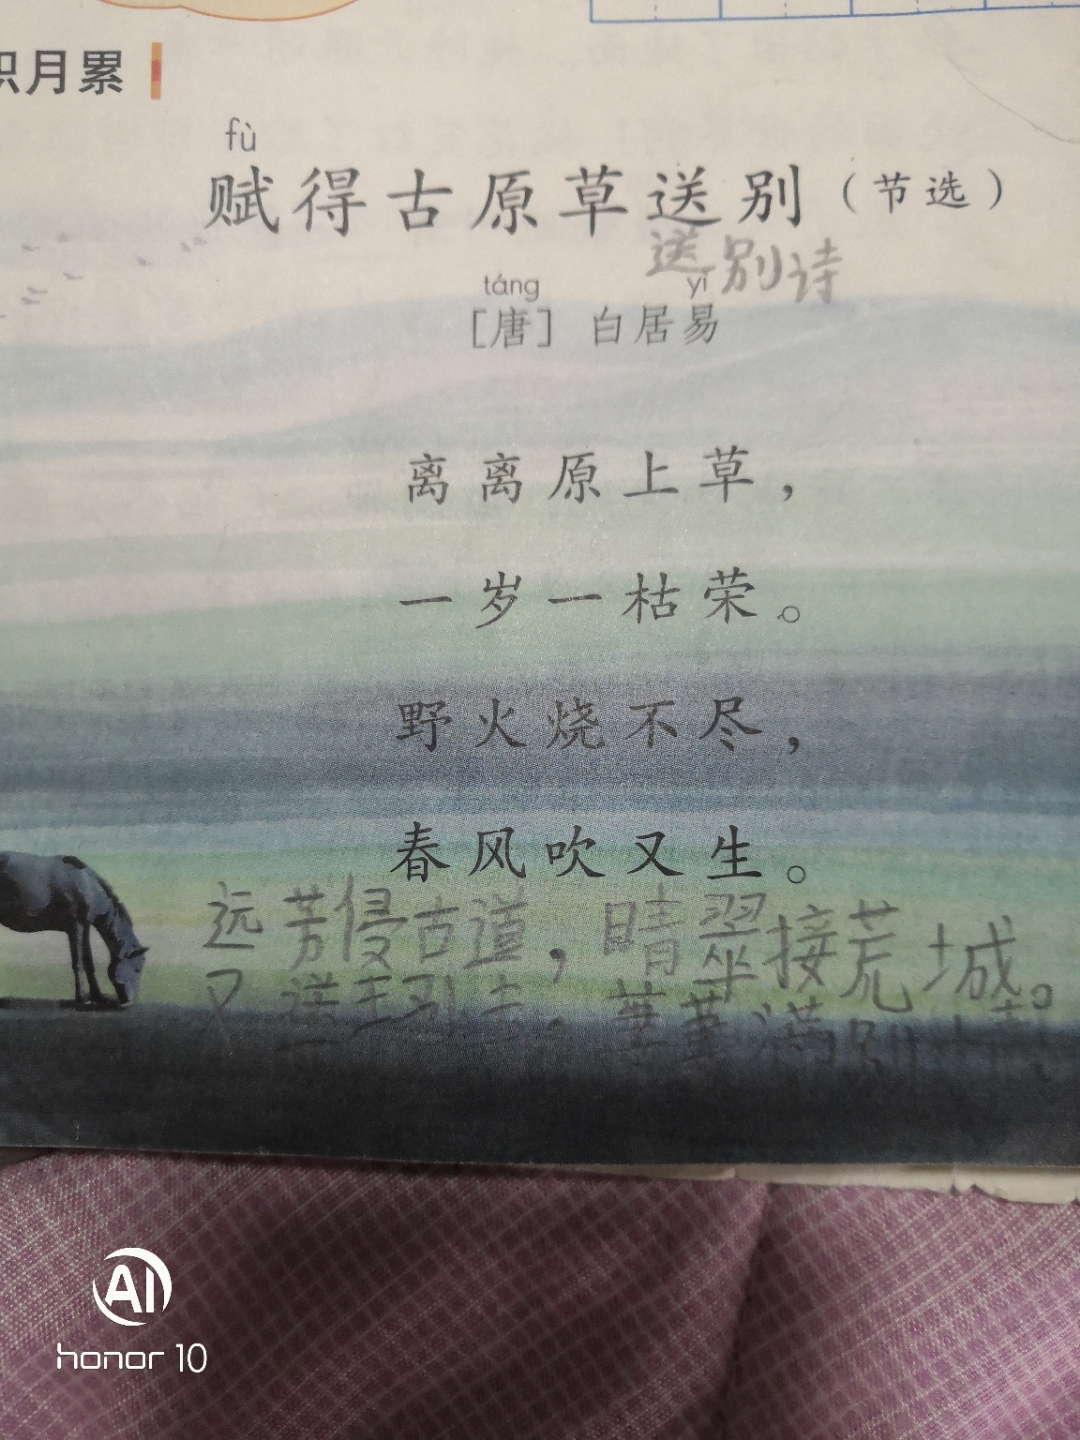 积月累
fù
赋得古原草送别（节选）
送别诗
táng yì
［唐］ 白居易
离离原上草，
一岁一枯荣。
野火烧不尽，
春风吹又生。
远芳侵古道，晴翠接荒城。
又送王孙去，萋萋满别情
AI
honor 10